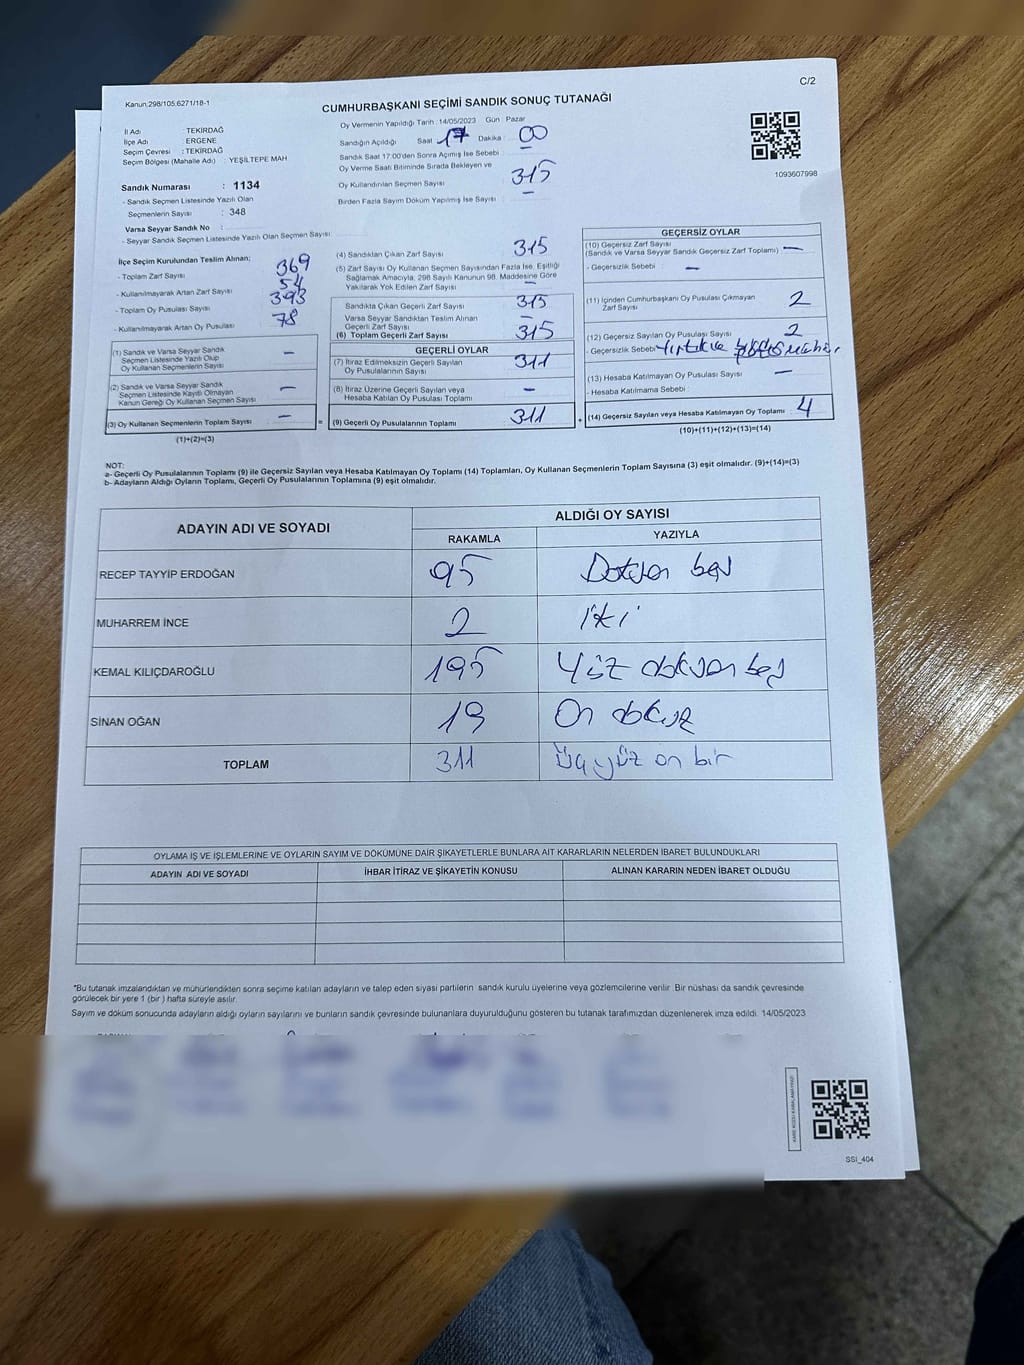 C/2
Kanun.298/105,6271/18-1
CUMHURBAŞKANI SEÇİMİ SANDIK SONUÇ TUTANAĞI
İl Adı : TEKİRDAĞ
İlçe Adı : ERGENE
Seçim Çevresi : TEKİRDAĞ
Seçim Bölgesi (Mahalle Adı) : YEŞİLTEPE MAH
Sandık Numarası : 1134
- Sandık Seçmen Listesinde Yazılı Olan
Seçmenlerin Sayısı : 348
Varsa Seyyar Sandık No :
- Seyyar Sandık Seçmen Listesinde Yazılı Olan Seçmen Sayısı:
Oy Vermenin Yapıldığı Tarih : 14/05/2023 Gün : Pazar
Sandığın Açıldığı Saat : 17 Dakika : 00
Sandık Saat 17:00'den Sonra Açılmış İse Sebebi : -
Oy Verme Saati Bitiminde Sırada Bekleyen ve
Oy Kullandırılan Seçmen Sayısı : 315
Birden Fazla Sayım Döküm Yapılmış İse Sayısı : -
1093607998
İlçe Seçim Kurulundan Teslim Alınan;
- Toplam Zarf Sayısı : 369
- Kullanılmayarak Artan Zarf Sayısı : 54
- Toplam Oy Pusulası Sayısı : 393
- Kullanılmayarak Artan Oy Pusulası : 78
(1) Sandık ve Varsa Seyyar Sandık
Seçmen Listesinde Yazılı Olup
Oy Kullanan Seçmenlerin Sayısı : -
(2) Sandık ve Varsa Seyyar Sandık
Seçmen Listesinde Kayıtlı Olmayan
Kanun Gereği Oy Kullanan Seçmen Sayısı : -
(3) Oy Kullanan Seçmenlerin Toplam Sayısı : -
(1)+(2)=(3)
(4) Sandıktan Çıkan Zarf Sayısı : 315
(5) Zarf Sayısı Oy Kullanan Seçmen Sayısından Fazla İse, Eşitliği
Sağlamak Amacıyla, 298 Sayılı Kanunun 98. Maddesine Göre
Yakılarak Yok Edilen Zarf Sayısı : -
Sandıkta Çıkan Geçerli Zarf Sayısı : 315
Varsa Seyyar Sandıktan Teslim Alınan
Geçerli Zarf Sayısı : -
(6) Toplam Geçerli Zarf Sayısı : 315
GEÇERLİ OYLAR
(7) İtiraz Edilmeksizin Geçerli Sayılan
Oy Pusulalarının Sayısı : 311
(8) İtiraz Üzerine Geçerli Sayılan veya
Hesaba Katılan Oy Pusulası Toplamı : -
= (9) Geçerli Oy Pusulalarının Toplamı : 311
GEÇERSİZ OYLAR
(10) Geçersiz Zarf Sayısı
(Sandık ve Varsa Seyyar Sandık Geçersiz Zarf Toplamı) : -
- Geçersizlik Sebebi : -
(11) İçinden Cumhurbaşkanı Oy Pusulası Çıkmayan
Zarf Sayısı : 2
(12) Geçersiz Sayılan Oy Pusulası Sayısı : 2
- Geçersizlik Sebebi : Yırtık ve
(13) Hesaba Katılmayan Oy Pusulası Sayısı : -
- Hesaba Katılmama Sebebi :
+ (14) Geçersiz Sayılan veya Hesaba Katılmayan Oy Toplamı : 4
(10)+(11)+(12)+(13)=(14)
NOT:
a- Geçerli Oy Pusulalarının Toplamı (9) ile Geçersiz Sayılan veya Hesaba Katılmayan Oy Toplamı (14) Toplamları, Oy Kullanan Seçmenlerin Toplam Sayısına (3) eşit olmalıdır. (9)+(14)=(3)
b- Adayların Aldığı Oyların Toplamı, Geçerli Oy Pusulalarının Toplamına (9) eşit olmalıdır.
ADAYIN ADI VE SOYADI ALDIĞI OY SAYISI
RAKAMLA YAZIYLA
RECEP TAYYİP ERDOĞAN 95 Doksan beş
MUHARREM İNCE 2 İki
KEMAL KILIÇDAROĞLU 195 Yüz doksan beş
SİNAN OĞAN 19 On dokuz
TOPLAM 311 Üçyüz on bir
OYLAMA İŞ VE İŞLEMLERİNE VE OYLARIN SAYIM VE DÖKÜMÜNE DAİR ŞİKAYETLERLE BUNLARA AİT KARARLARIN NELERDEN İBARET BULUNDUKLARI
ADAYIN ADI VE SOYADI İHBAR İTİRAZ VE ŞİKAYETİN KONUSU ALINAN KARARIN NEDEN İBARET OLDUĞU
*Bu tutanak imzalandıktan ve mühürlendikten sonra seçime katılan adayların ve talep eden siyasi partilerin sandık kurulu üyelerine veya gözlemcilerine verilir. Bir nüshası da sandık çevresinde
görülecek bir yere 1 (bir) hafta süreyle asılır.
Sayım ve döküm sonucunda adayların aldığı oyların sayılarını ve bunların sandık çevresinde bulunanlara duyurulduğunu gösteren bu tutanak tarafımızdan düzenlenerek imza edildi. 14/05/2023
SSI_404